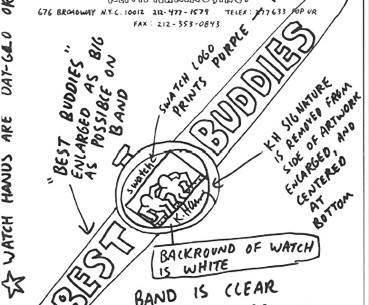 676 BROADWAY N.Y.C. 10012 212-477-1579 TELEX: 277633 POP UR
FAX: 212-353-0843
WATCH HANDS ARE DAY-GLO
"BEST BUDDIES"
ENLARGED AS BIG
AS POSSIBLE ON
BAND
SWATCH LOGO
PRINTS PURPLE
BEST
BUDDIES
swatch
K. Haring
KH SIGNATURE
IS REMOVED FROM
SIDE OF ARTWORK
ENLARGED, AND
CENTERED
AT
BOTTOM
BACKROUND OF WATCH
IS WHITE
BAND IS CLEAR